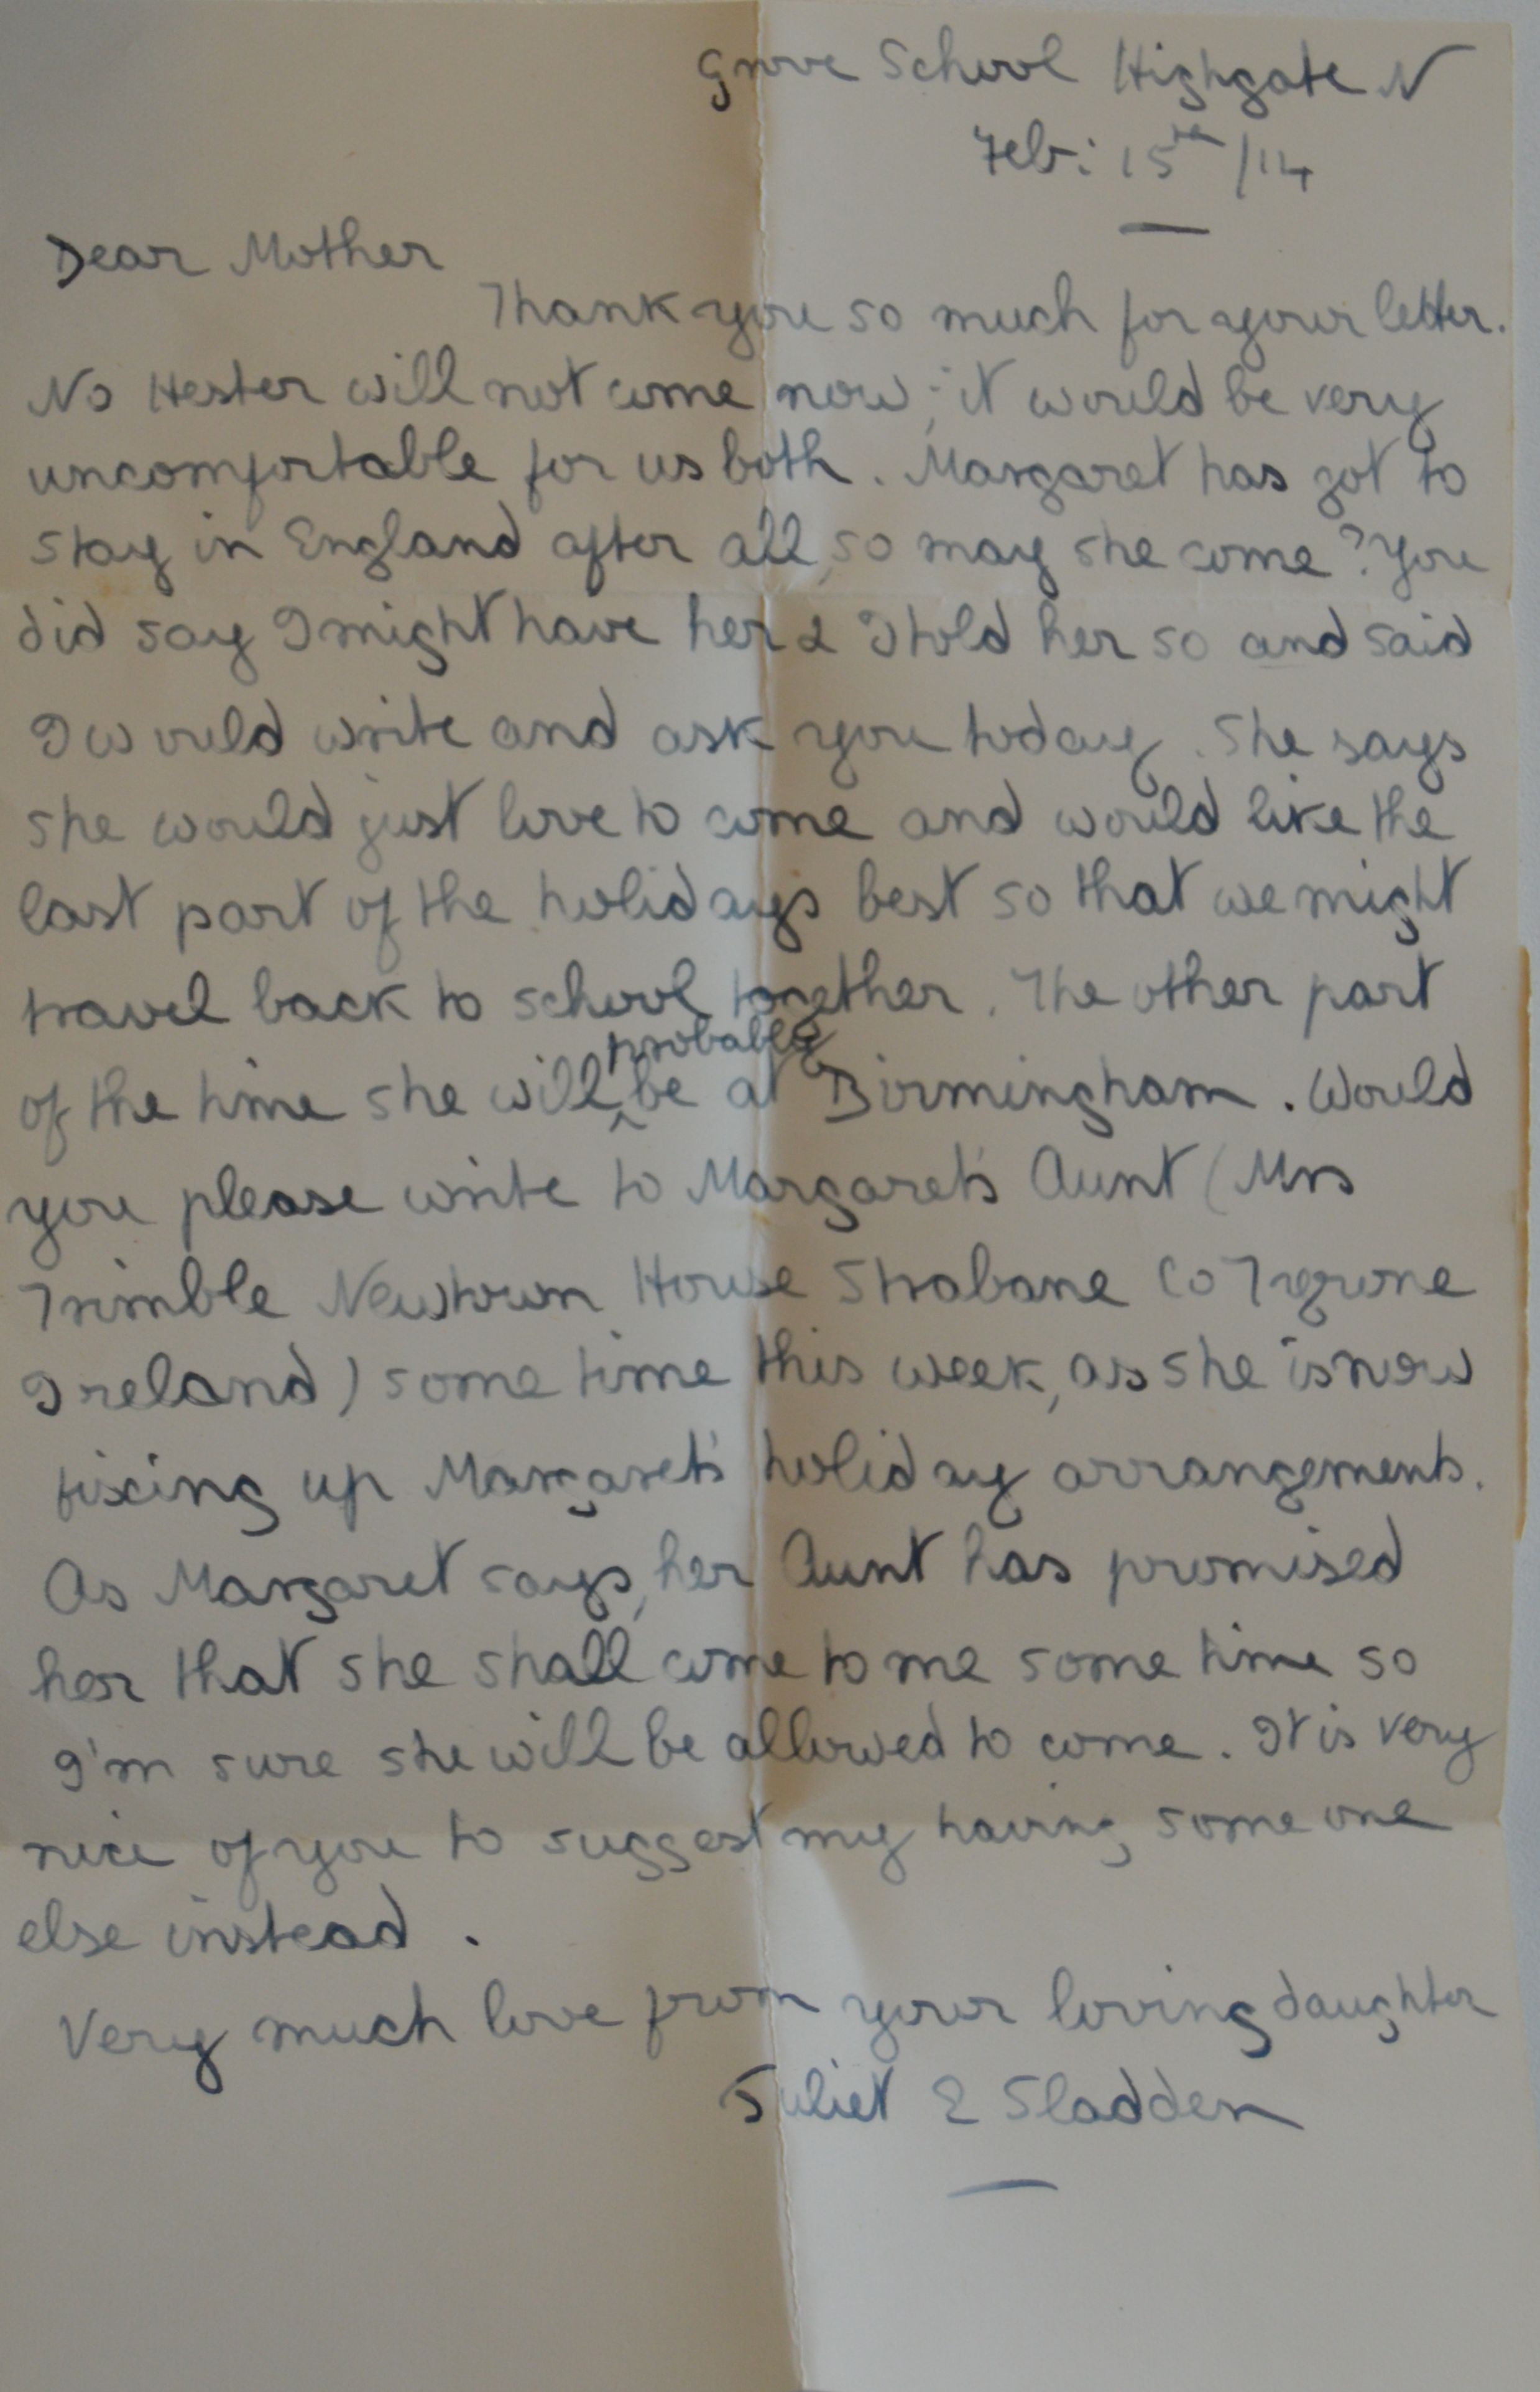 Grove School Highgate N
Feb: 15th /14
Dear Mother
Thank you so much for your letter.
No Hester will not come now; it would be very
uncomfortable for us both. Margaret has got to
stay in England after all, so may she come? You
did say I might have her & I told her so and said
I would write and ask you today. She says
she would just love to come and would like the
last part of the holidays best so that we might
travel back to school together. The other part
probably
of the time she will ^ be at Birmingham. Would
you please write to Margaret's Aunt (Mrs
Trimble Newtown House Strabane Co Tyrone
Ireland) some time this week, as she is now
fixing up Margaret's holiday arrangements.
As Margaret says, her Aunt has promised
her that she shall come to me some time so
I'm sure she will be allowed to come. It is very
nice of you to suggest my having some one
else instead.
Very much love from your loving daughter
Juliet E Sladden